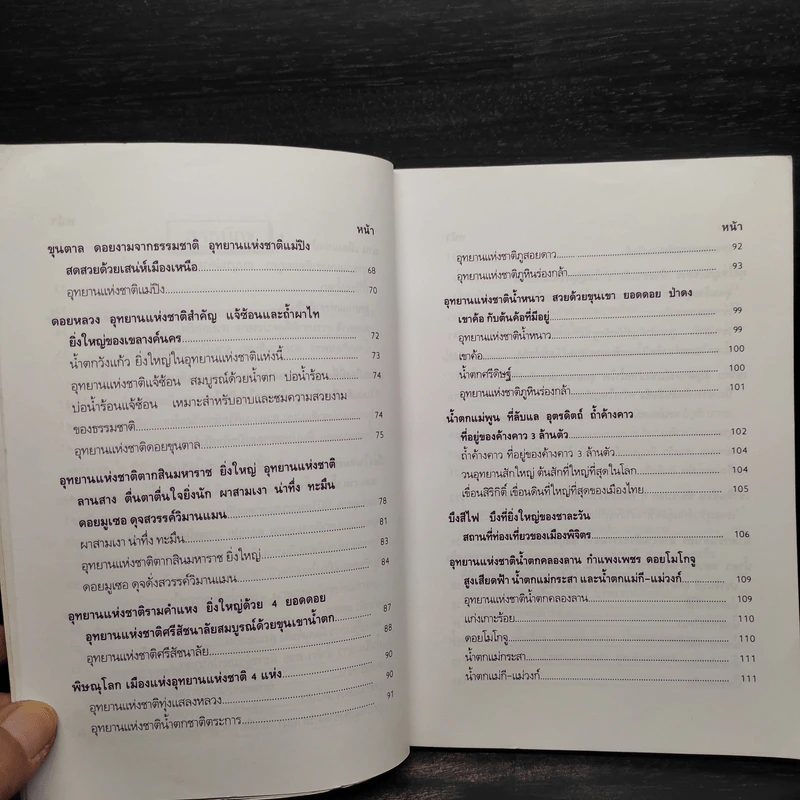 หน้า
ขุนตาล ดอยงามจากธรรมชาติ อุทยานแห่งชาติแม่ปิง
สดสวยด้วยเสน่ห์เมืองเหนือ 68
อุทยานแห่งชาติแม่ปิง 70
ดอยหลวง อุทยานแห่งชาติสำคัญ แจ้ซ้อนและถ้ำผาไท
ยิ่งใหญ่ของเขลางค์นคร 72
น้ำตกวังแก้ว ยิ่งใหญ่ในอุทยานแห่งชาติแห่งนี้ 73
อุทยานแห่งชาติแจ้ซ้อน สมบูรณ์ด้วยน้ำตก บ่อน้ำร้อน 74
บ่อน้ำร้อนแจ้ซ้อน เหมาะสำหรับอาบและชมความสวยงาม
ของธรรมชาติ 74
อุทยานแห่งชาติดอยขุนตาล 75
อุทยานแห่งชาติตากสินมหาราช ยิ่งใหญ่ อุทยานแห่งชาติ
ลานสาง ตื่นตาตื่นใจยิ่งนัก ผาสามเงา น่าทึ่ง ทะมึน
ดอยมูเซอ ดุจสวรรค์วิมานแมน 78
ผาสามเงา น่าทึ่ง ทะมึน 81
อุทยานแห่งชาติตากสินมหาราช ยิ่งใหญ่ 83
ดอยมูเซอ ดุจดั่งสวรรค์วิมานแมน 84
อุทยานแห่งชาติรามคำแหง ยิ่งใหญ่ด้วย 4 ยอดดอย
อุทยานแห่งชาติศรีสัชนาลัยสมบูรณ์ด้วยขุนเขาน้ำตก 87
อุทยานแห่งชาติศรีสัชนาลัย 88
พิษณุโลก เมืองแห่งอุทยานแห่งชาติ 4 แห่ง 90
อุทยานแห่งชาติทุ่งแสลงหลวง 90
อุทยานแห่งชาติน้ำตกชาติตระการ 91
หน้า
อุทยานแห่งชาติภูสอยดาว 92
อุทยานแห่งชาติภูหินร่องกล้า 93
อุทยานแห่งชาติน้ำหนาว สวยด้วยขุนเขา ยอดดอย ป่าดง
เขาค้อ กับต้นค้อที่มีอยู่ 99
อุทยานแห่งชาติน้ำหนาว 99
เขาค้อ 100
น้ำตกศรีดิษฐ์ 100
อุทยานแห่งชาติภูหินร่องกล้า 101
น้ำตกแม่พูน ที่ลับแล อุตรดิตถ์ ถ้ำค้างคาว
ที่อยู่ของค้างคาว 3 ล้านตัว 102
ถ้ำค้างคาว ที่อยู่ของค้างคาว 3 ล้านตัว 104
วนอุทยานสักใหญ่ ต้นสักที่ใหญ่ที่สุดในโลก 104
เขื่อนสิริกิติ์ เขื่อนดินที่ใหญ่ที่สุดของเมืองไทย 105
บึงสีไฟ บึงที่ยิ่งใหญ่ของชาละวัน
สถานที่ท่องเที่ยวของเมืองพิจิตร 106
อุทยานแห่งชาติน้ำตกคลองลาน กำแพงเพชร ดอยโมโกจู
สูงเสียดฟ้า น้ำตกแม่กระสา และน้ำตกแม่กี-แม่วงก์ 109
อุทยานแห่งชาติน้ำตกคลองลาน 109
แก่งเกาะร้อย 110
ดอยโมโกจู 110
น้ำตกแม่กระสา 111
น้ำตกแม่กี-แม่วงก์ 111